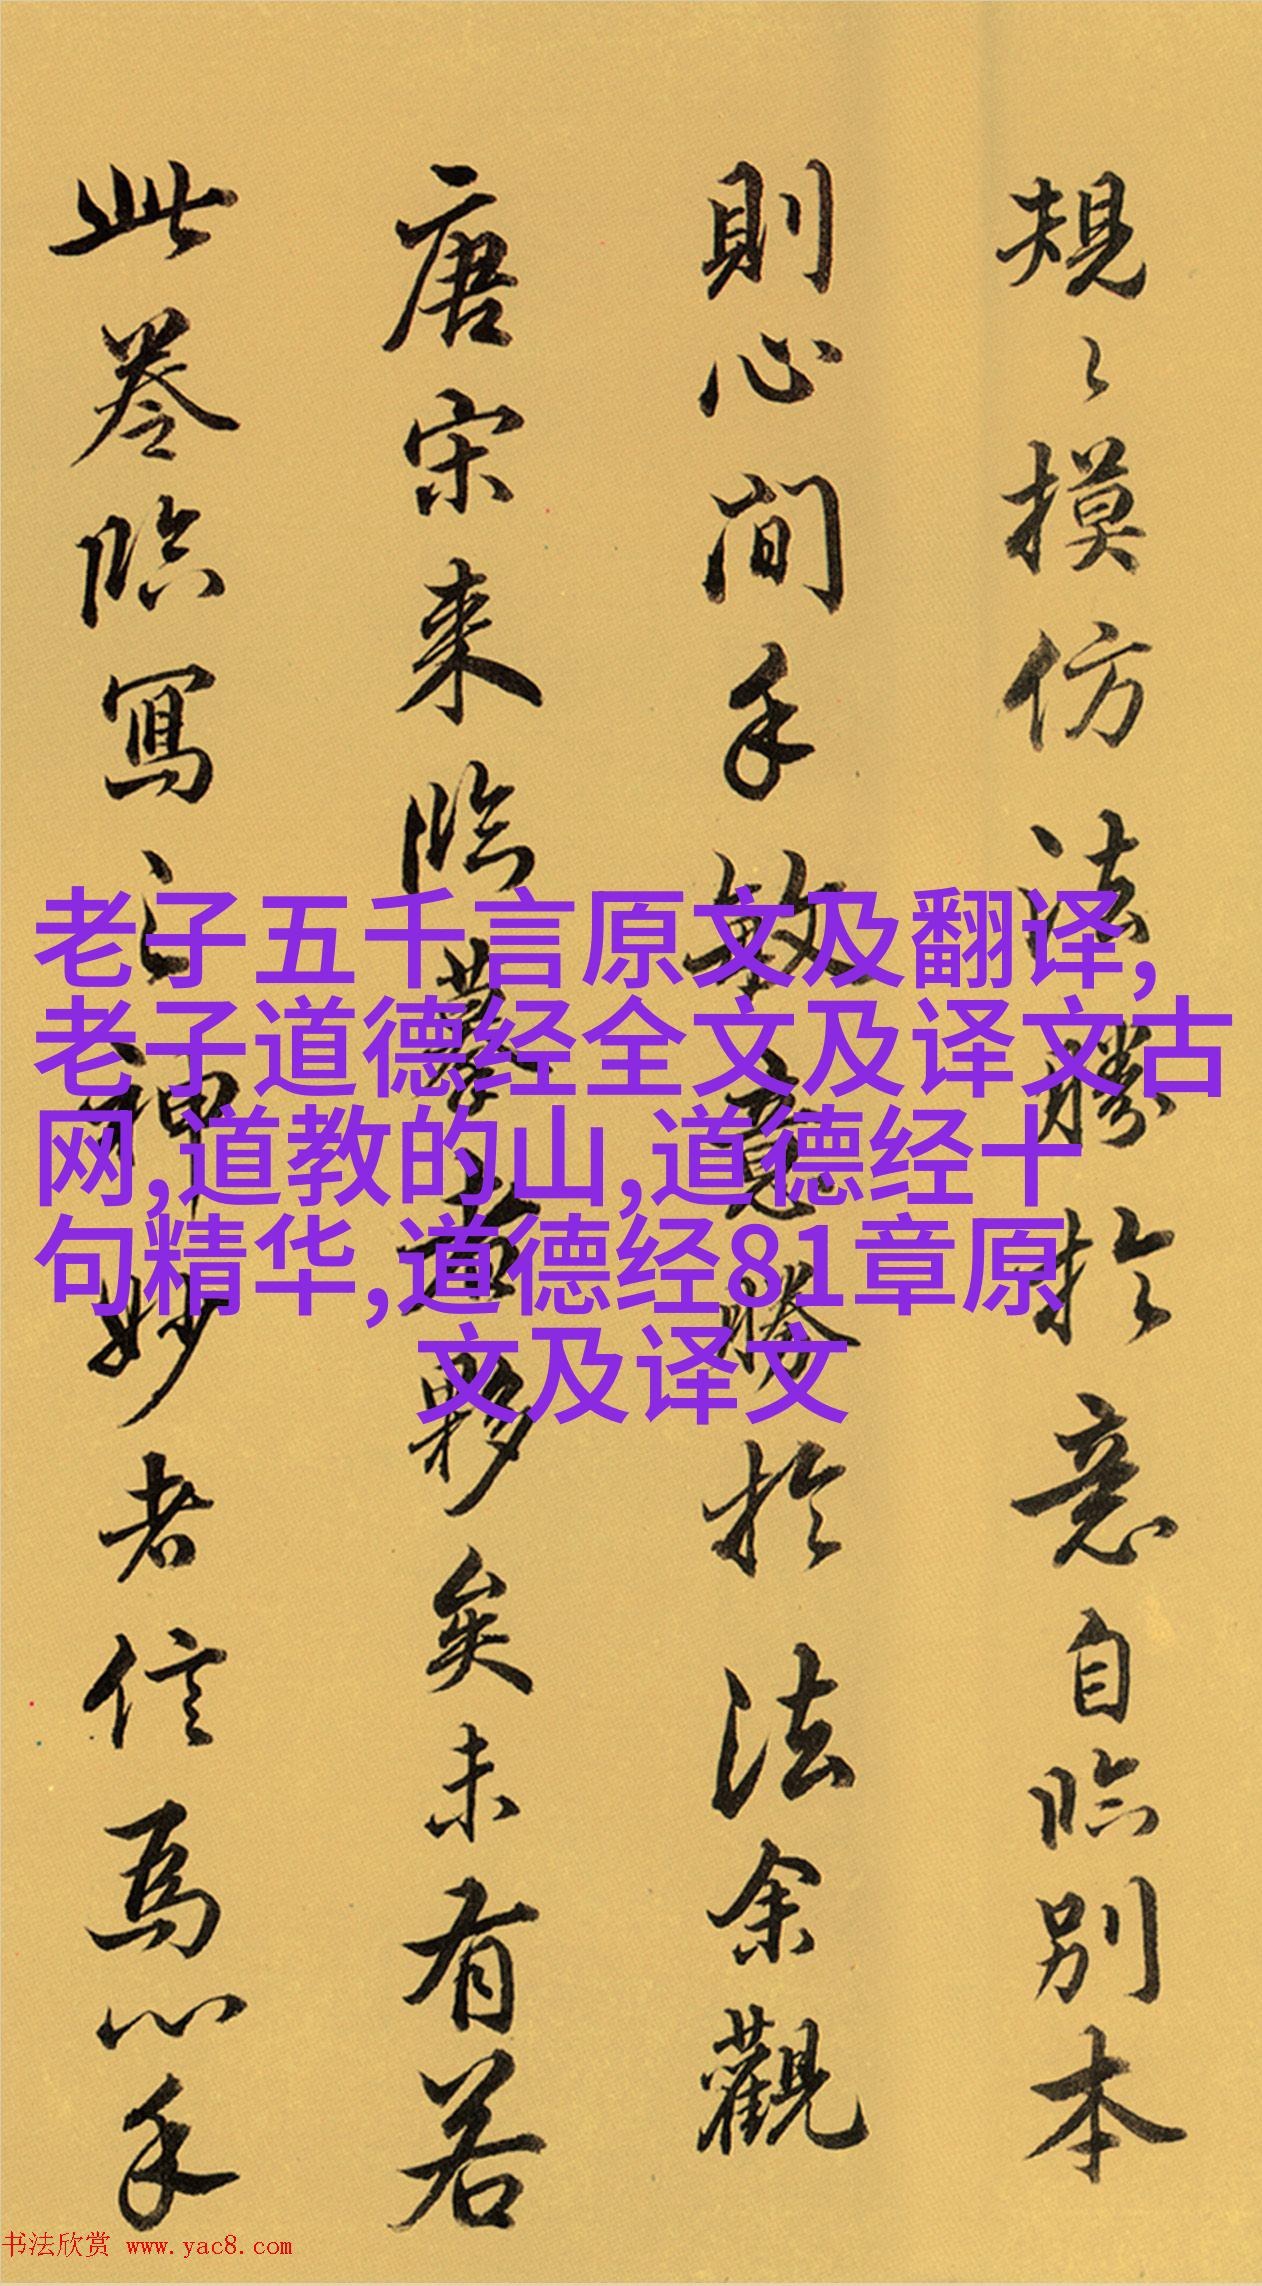 規〻摸仿法勝於意自臨別本
則心閒手敏意勝於法余觀
唐宋来臨摹者夥矣未有若
此卷臨寫之神妙者信焉心手
老子五千言原文及翻译,
老子道德经全文及译文古
网,道教的山,道德经十
句精华,道德经81章原
文及译文
书法欣赏 www.yac8.com